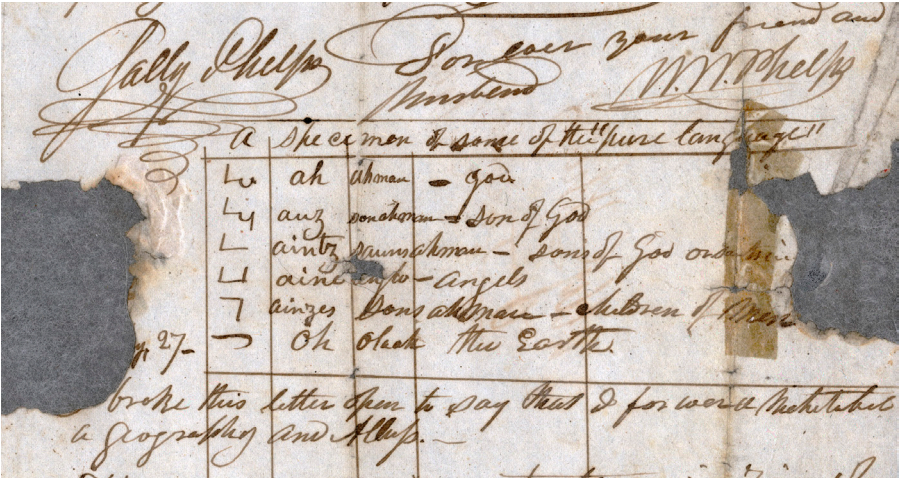 For ever your friend and
Sally Phelps husband W. W. Phelps
A specimen of some of the "pure language"
ah ahman - god
auz sonahman - son of God
aintz sauns ahman - sons of God or
aine anglo - angels
ainzes sons ahman - children of men
27- oh oleah the Earth.
broke this letter open to say that I forward Mehitabel
a geography and Atlas. -